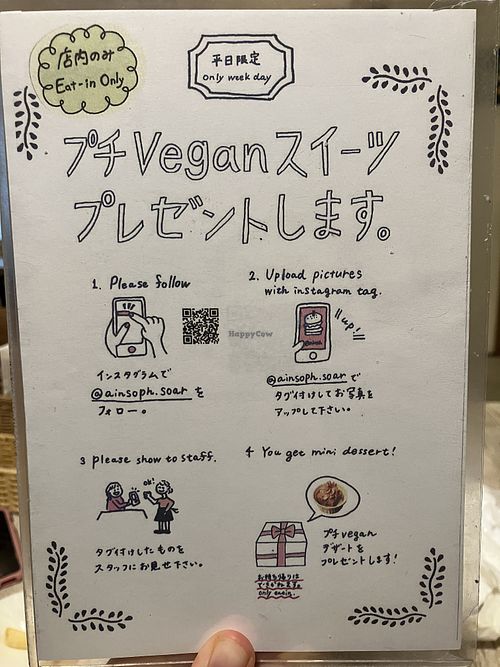 店内のみ
Eat-in Only
平日限定
only week day
プチVeganスイーツ
プレゼントします。
1. Please follow
インスタグラムで
@ainsoph.soar を
フォロー。
2. Upload pictures
with instagram tag.
up!
@ainsoph.soar で
タグ付けしてお写真を
アップして下さい。
HappyCow
3 please show to staff.
ok!
タグ付けしたものを
スタッフにお見せ下さい。
4 You get mini dessert!
プチvegan
デザートを
プレゼントします!
お持ち帰りは
できかねます。
only eatin.